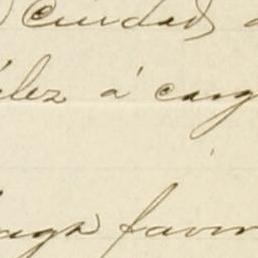 Ciudad
elez á carg
haga favor